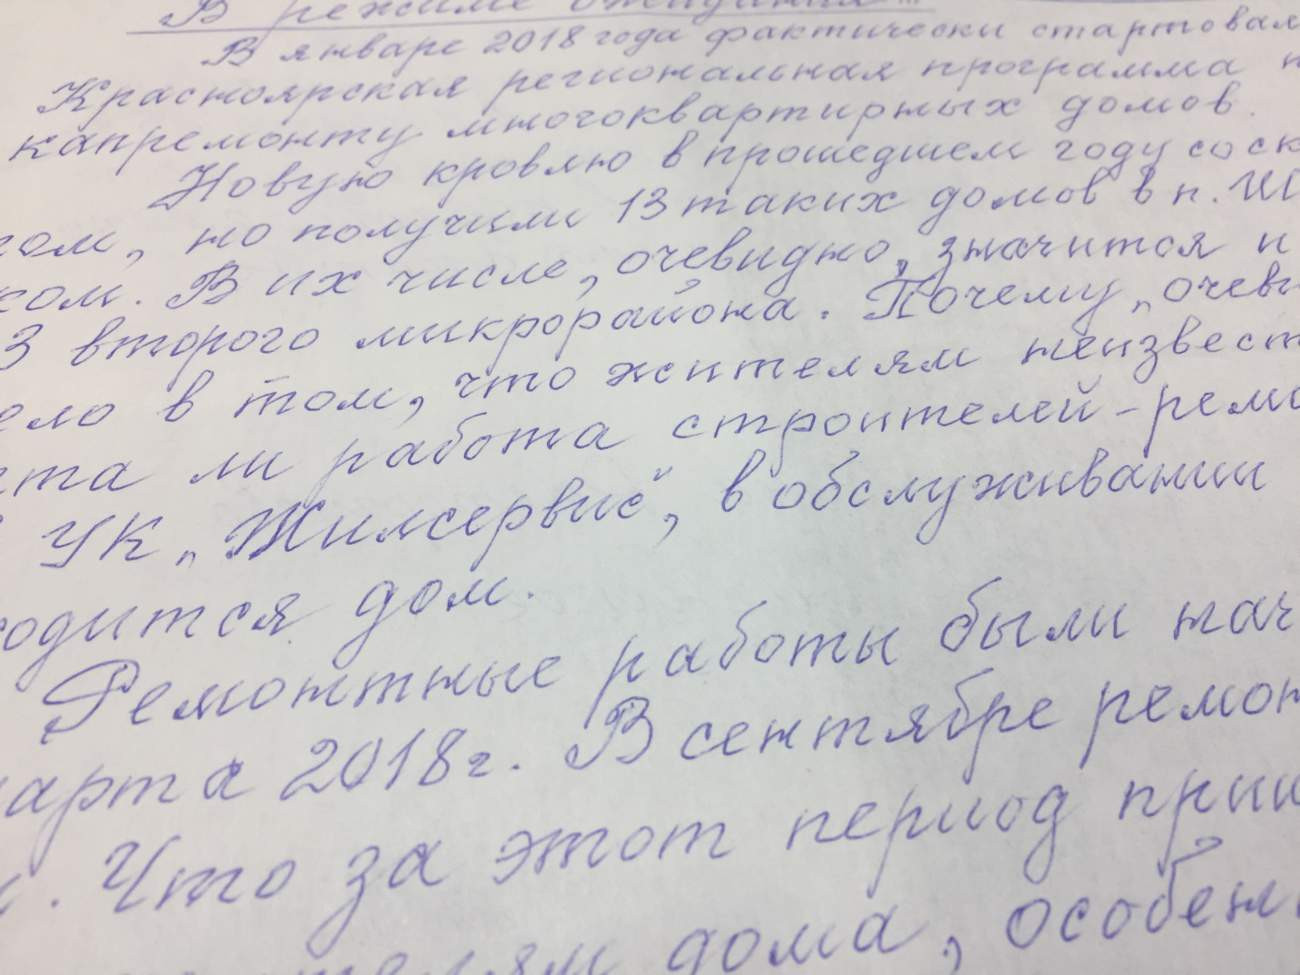 В режиме ожидания...
В январе 2018 года фактически стартовал
Красноярская региональная программа п
капремонту многоквартирных домов.
Новую кровлю в прошедшем году со ск
ом, но получили 13 таких домов в п. Ш
ком. В их числе, очевидно, значится и
3 второго микрорайона. Почему „очеви
ело в том, что жителям неизвест
ята ли работа строителей-ремо
УК „Жилсервис", в обслуживании
одится дом.
Ремонтные работы были нач
арта 2018г. В сентябре ремон
. Что за этот период приш
телям дома, особен